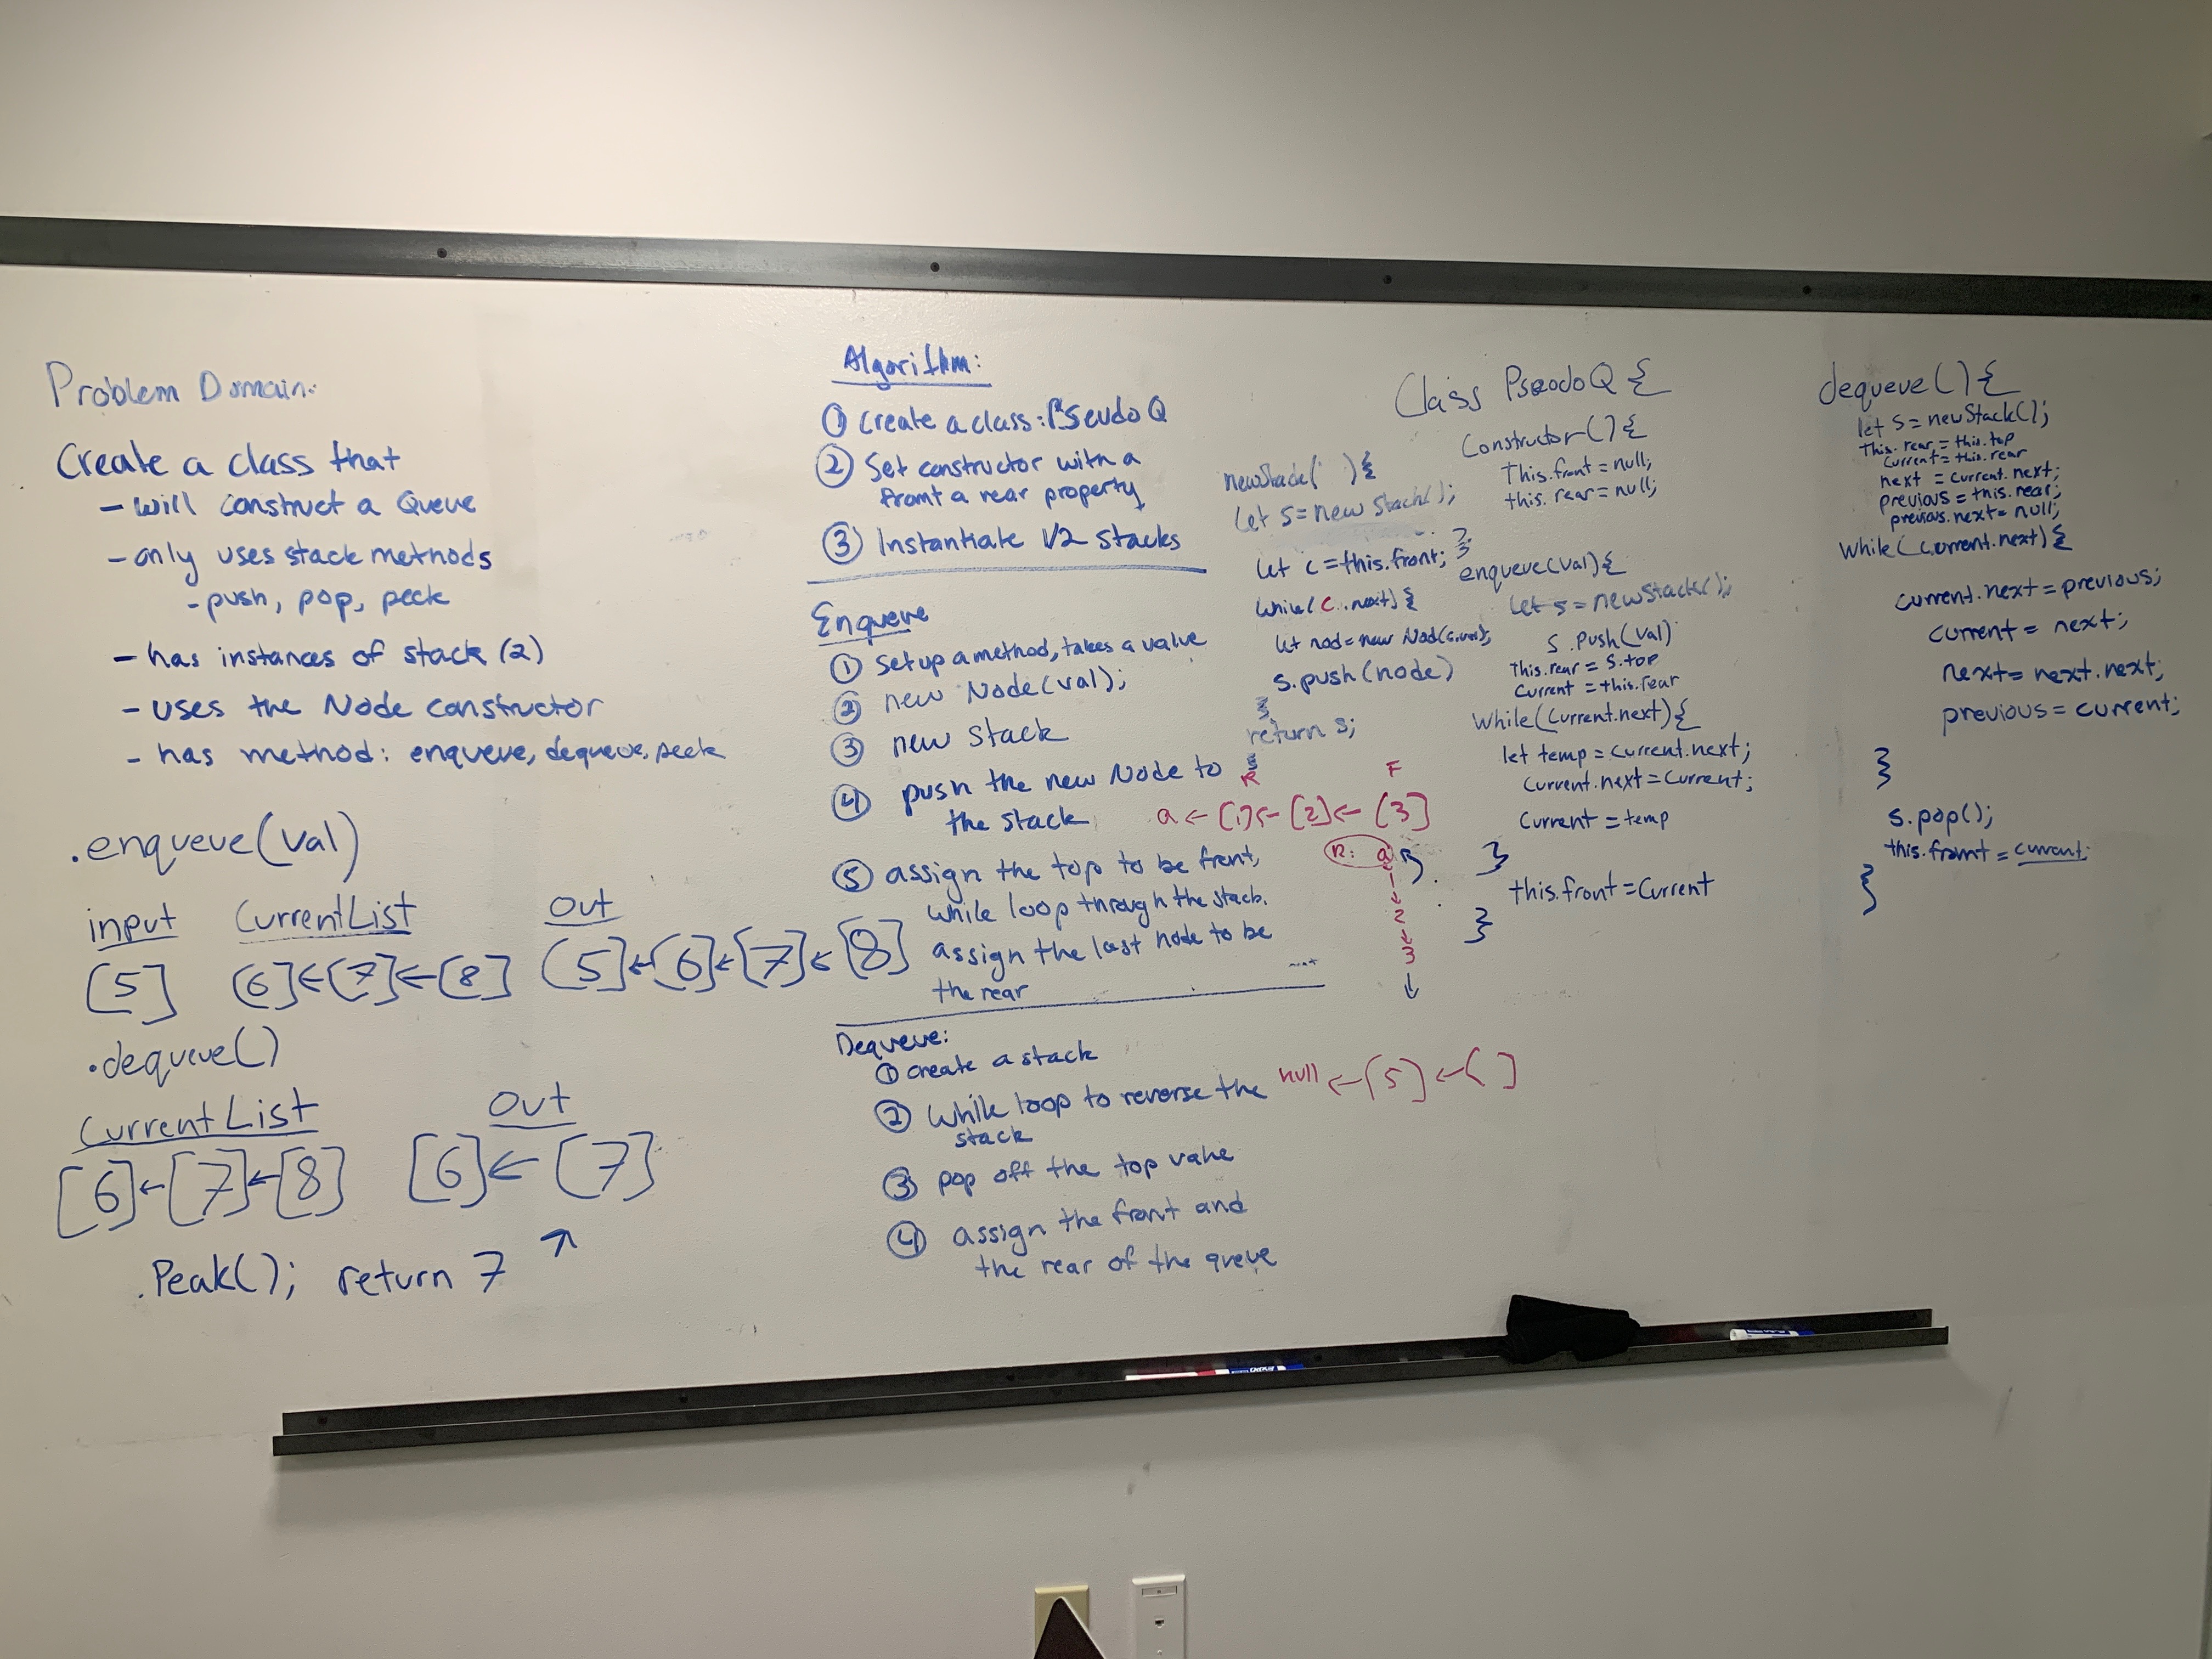 Problem Domain:
Create a class that
- will construct a Queue
- only uses stack methods
- push, pop, peek
- has instances of stack (2)
- uses the Node constructor
- has method: enqueve, dequeve, peek
.enqueve(val)
input CurrentList Out
[5] [6]←[7]←[8] [5]←[6]←[7]←[8]
.dequeve()
CurrentList Out
[6]←[7]←[8] [6]←[7]
.Peak(); return 7 ↗
Algorithm:
① Create a class: PSeudoQ
② Set constructor with a
front a rear property
③ Instantiate 1/2 stacks
Enqueve
① Setup a method, takes a value
② new Node(val);
③ new Stack
④ push the new Node to
the stack
⑤ assign the top to be front,
while loop through the stack.
assign the last node to be
the rear
Dequeve:
① create a stack
② while loop to reverse the
stack
③ pop off the top value
④ assign the front and
the rear of the queve
newStack( ){
let s = new Stack();
let c = this.front;
while(c.next){
let nod = new Nod(c.val);
s.push(node)
}
return s;
}
R F
a ← [1] ← [2] ← [3]
R: a R
↓
2
↓
3
↓
null ← [5] ← [ ]
Class PseodoQ {
Constructor(){
This.front = null;
this.rear = null;
}
enqueve(val){
let s = newStack();
s.push(val)
This.rear = s.top
Current = this.rear
While(Current.next){
let temp = Current.next;
Current.next = Current;
Current = temp
}
this.front = Current
}
dequeve(){
let s = newStack();
This.rear = this.top
Current = this.rear
next = current.next;
previous = this.rear;
previous.next = null;
While(Current.next){
current.next = previous;
current = next;
next = next.next;
previous = current;
}
s.pop();
this.front = current;
}